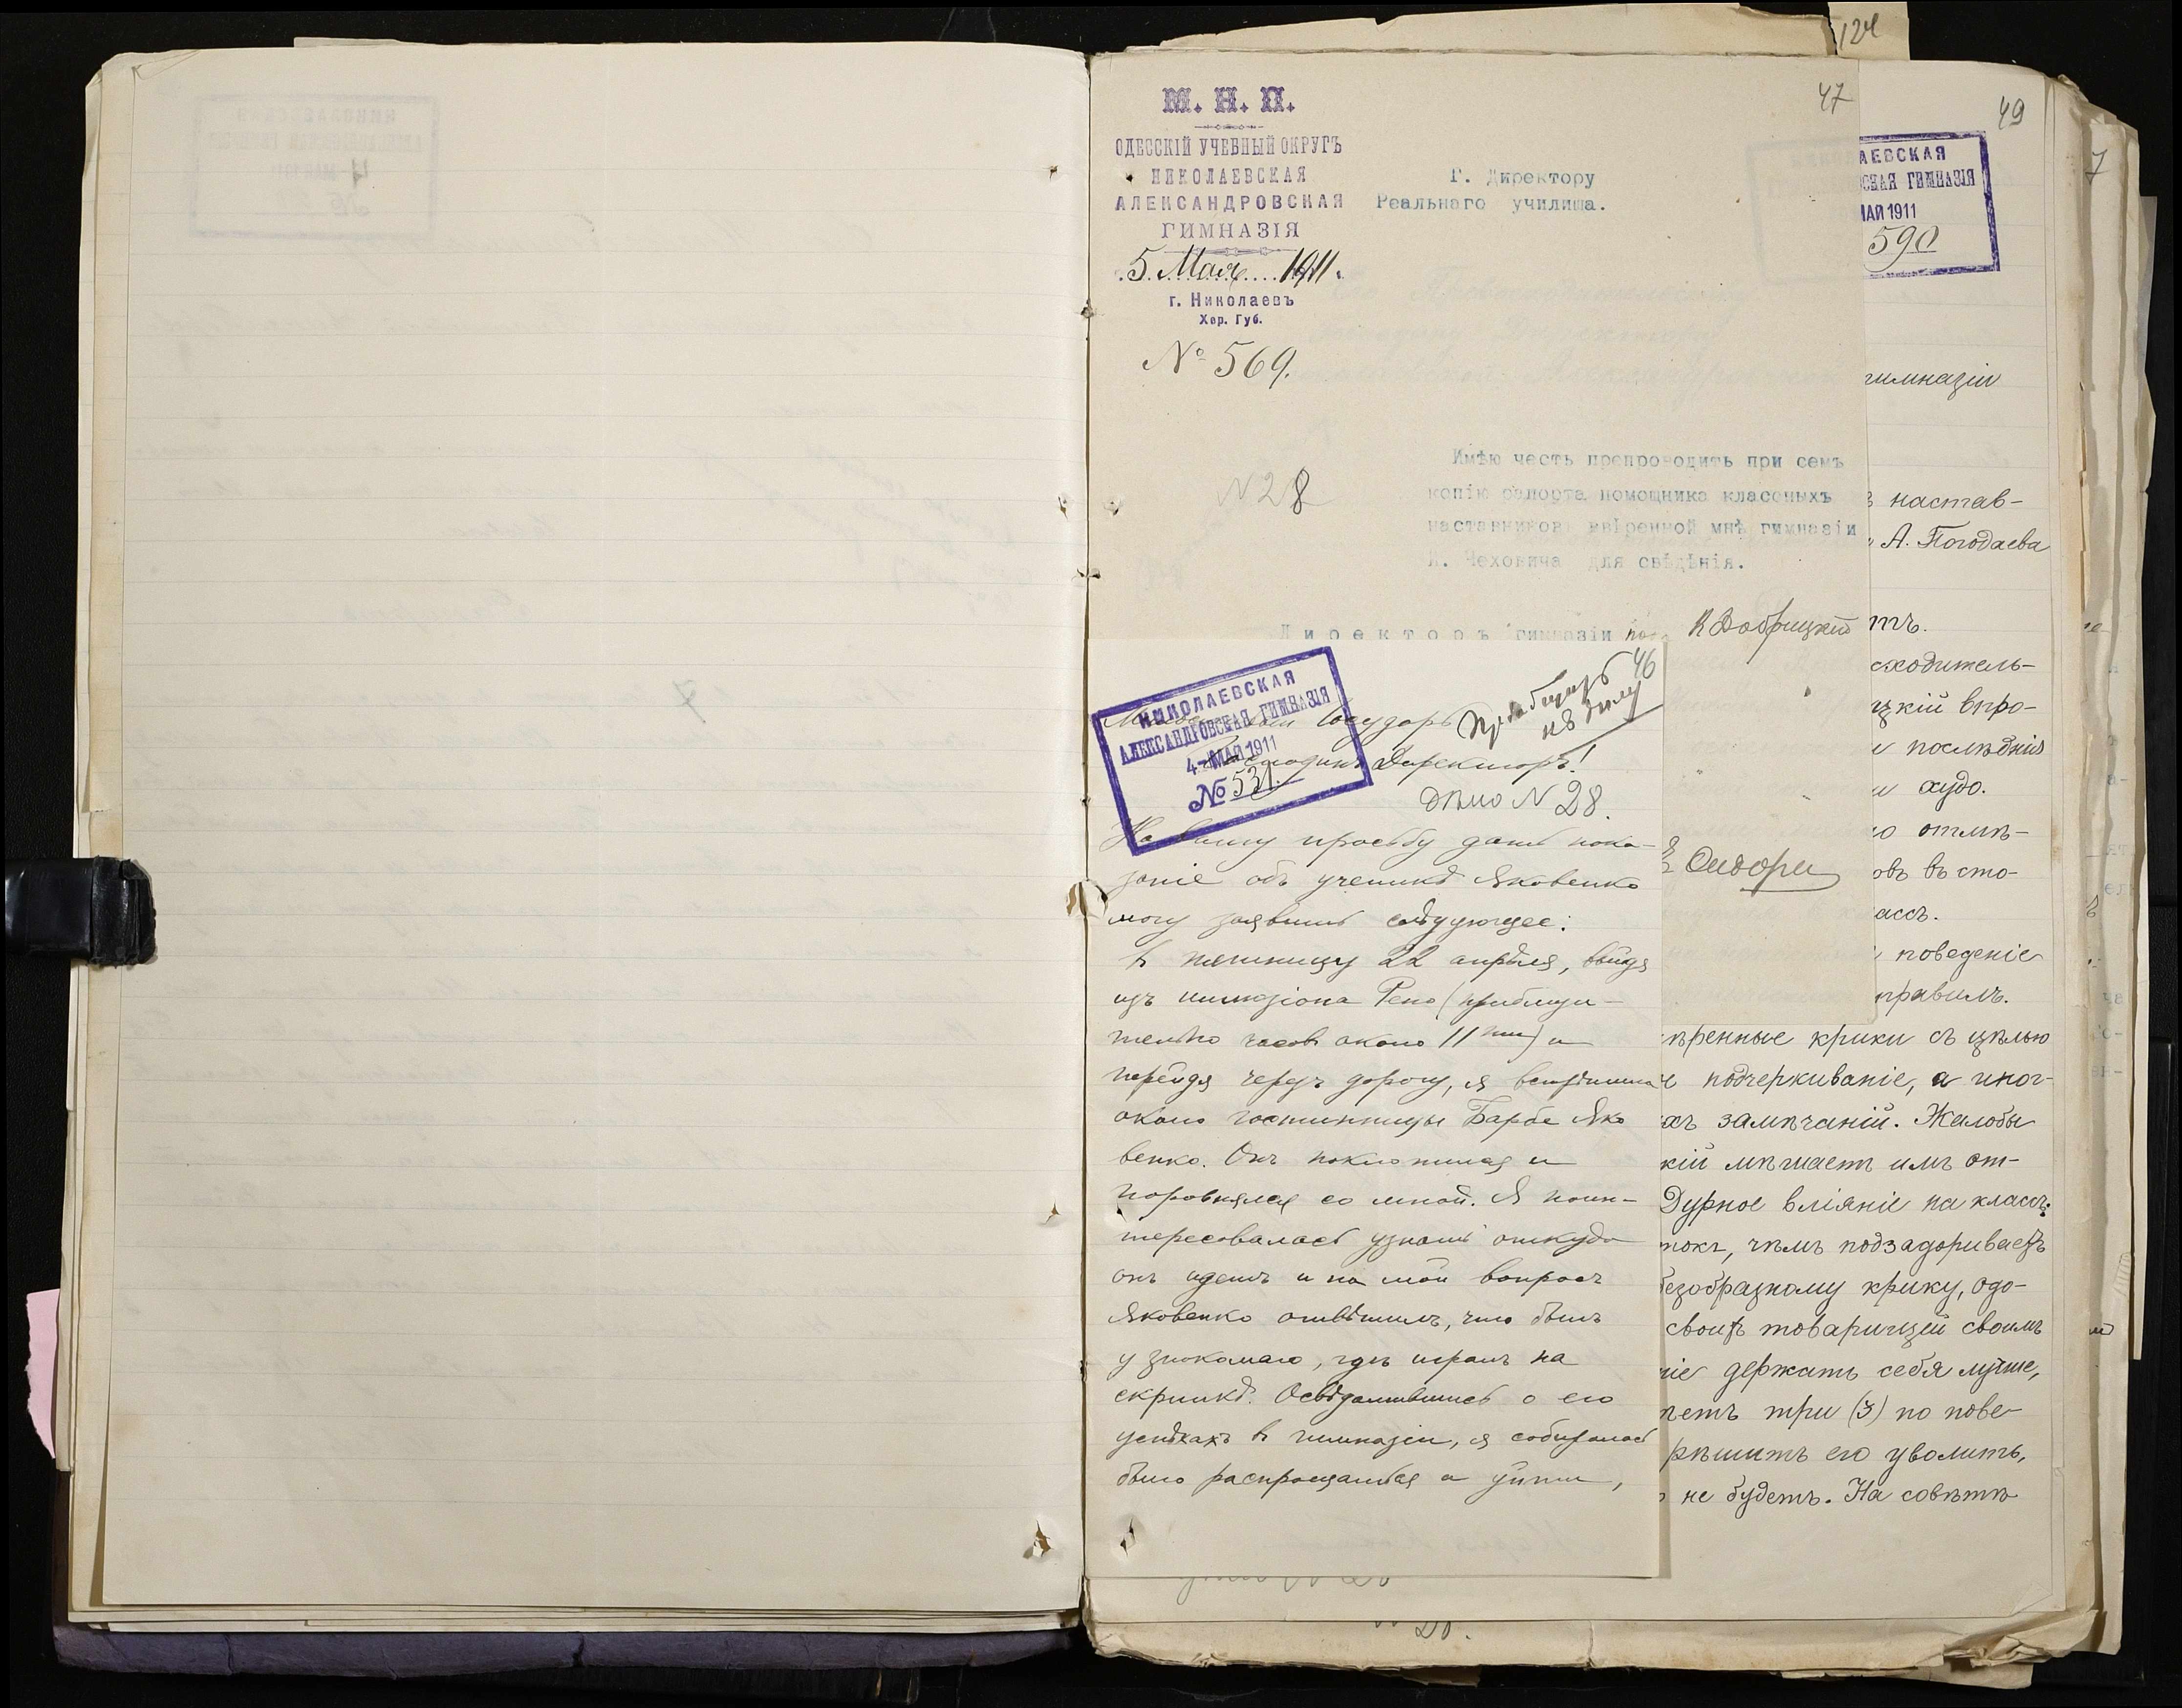 124
47
М. Н. П.
ОДЕССКІЙ УЧЕБНЫЙ ОКРУГЪ
НИКОЛАЕВСКАЯ
АЛЕКСАНДРОВСКАЯ
ГИМНАЗІЯ
5 Мая 1911 г.
г. Николаевъ
Хер. Губ.
№ 569.
Г. Директору
Реальнаго училища.
N 28
Имѣю честь препроводить при семъ
копію рапорта помощника классныхъ
наставниковъ ввѣренной мнѣ гимназіи
Чеховича для свѣдѣнія.
Директоръ гимназіи
46
НИКОЛАЕВСКАЯ
АЛЕКСАНДРОВСКАЯ ГИМНАЗІЯ
4 - МАЯ 1911
№ 531.
Государь
Господинъ Директоръ!
дѣло N 28.
На вашу просьбу дать пока-
заніе объ ученикѣ Яковенко
могу заявить слѣдующее:
В пятницу 22 апрѣля, выйдя
изъ иллюзіона Рено (приблизи-
тельно часовъ около 11 ти) и
перейдя черезъ дорогу, я встрѣтила
около гостинницы Барбе Яко
венко. Онъ поклонился и
поровнялся со мной. Я поин-
тересовалась узнать откуда
онъ идетъ и на мой вопросъ
Яковенко отвѣтилъ, что былъ
у знакомаго, гдѣ игралъ на
скрипкѣ. Освѣдомившись о его
успѣхахъ в гимназіи, я собиралась
было распрощаться и уйти,
49
АЕВСКАЯ
СКАЯ ГИМНАЗІЯ
МАЙ 1911
590
гимназіи
настав-
А. Погодаева
тъ.
сходитель-
цкій впро-
и послѣднія
и худо.
о отмѣ-
овъ въ сто-
ассъ.
поведеніе
правилъ.
ѣренные крики съ цѣлью
подчеркиваніе, а иног-
ахъ замѣчаній. Жалобы
кій мѣшаетъ имъ от-
Дурное вліяніе на классъ.
токъ, чѣмъ подзадориваетъ
безобразному крику, одо-
своихъ товарищей своимъ
ніе держать себя лучше,
петъ три (3) по пове-
рѣшитъ его уволить,
не будетъ. На совѣтѣ
7